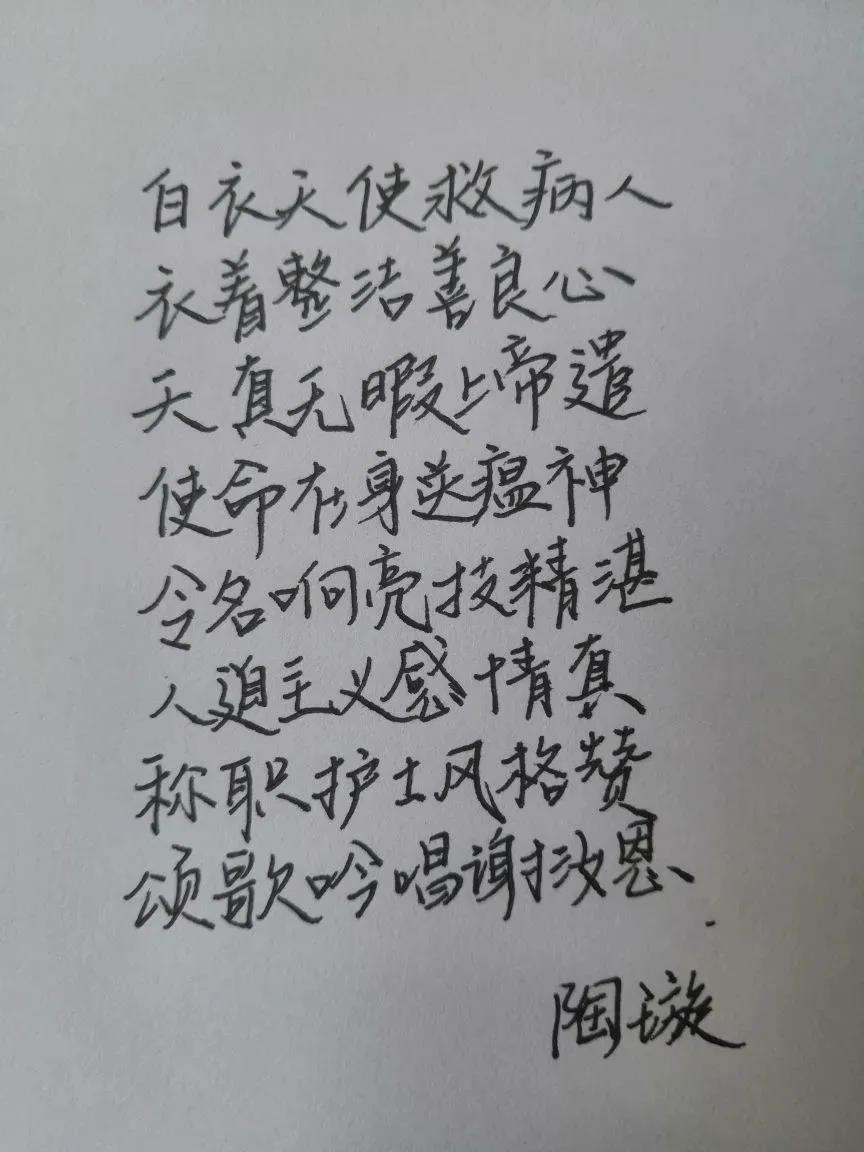 白衣天使救病人
衣着整洁善良心
天真无暇上帝遣
使命在身送瘟神
令名响亮技精湛
人道主义感情真
称职护士风格赞
颂歌吟唱谢救恩.
陶璇